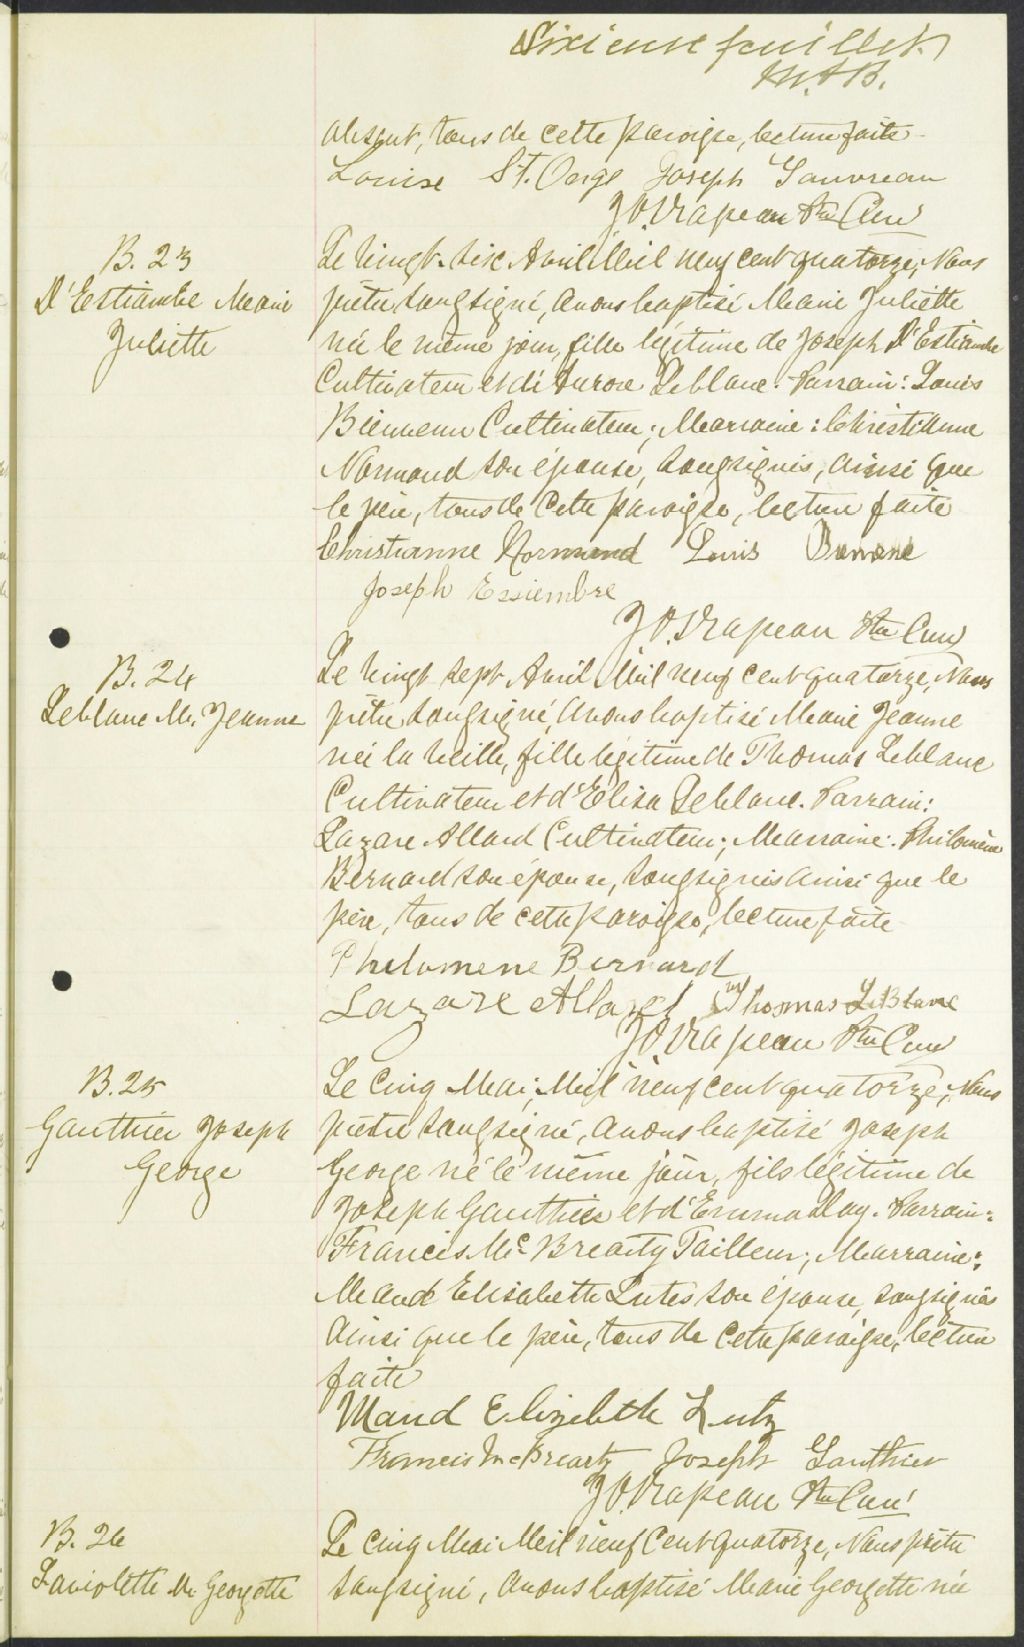 Sixième feuillet
M.A.B.
absent, tous de cette paroisse, lecture faite
Louise St. Onge Joseph Gauvreau
J.O. Drapeau Ptre Curé
B. 23
D'Estiambe Marie
Juliette
Le vingt-six Avril Mil neuf cent quatorze, Nous
prêtre soussigné, avons baptisé Marie Juliette
née le même jour, fille légitime de Joseph D'Estiambe
Cultivateur et de Aurore Leblanc. Parrain: Louis
Bienvenu Cultivateur; Marraine: Christianne
Normand son épouse, soussignés, ainsi que
le père, tous de cette paroisse, lecture faite
Christianne Normand Louis
Joseph Essiembre
J.O. Drapeau Ptre Curé
B. 24
Leblanc M. Jeanne
Le vingt sept Avril Mil neuf cent quatorze, Nous
prêtre soussigné, avons baptisé Marie Jeanne
née la veille, fille légitime de Thomas Leblanc
Cultivateur et d'Elisa Leblanc. Parrain:
Lazare Allard Cultivateur; Marraine: Philomène
Bernard son épouse, soussignés ainsi que le
père, tous de cette paroisse, lecture faite
Philomene Bernard
Lazare Allard Thomas LeBlanc
J.O. Drapeau Ptre Curé
B. 25
Gauthier Joseph
George
Le cinq Mai, Mil neuf cent quatorze, Nous
prêtre soussigné, avons baptisé Joseph
George né le même jour, fils légitime de
Joseph Gauthier et d'Emma Day. Parrain:
Francis Mc Brearty Tailleur; Marraine:
Maud Elisabeth Lutes son épouse, soussignés
ainsi que le père, tous de cette paroisse, lecture
faite
Maud Elizebeth Lutz
Francis McBrearty Joseph Gauthier
J.O. Drapeau Ptre Curé
B. 26
Laviolette M. Georgette
Le cinq Mai Mil neuf Cent quatorze, Nous prêtre
soussigné, avons baptisé Marie Georgette née